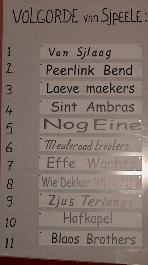 VOLGORDE van SJPEELE:
1 Van Sjlaag
2 Peerlink Bend
3 Laeve maekers
4 Sint Ambras
5 Nog Eine
6 Meuleraod
7 Effe Wachte
8 Wie Dekker
9 Zjus Terlangs
10 Hofkapel
11 Blaos Brothers